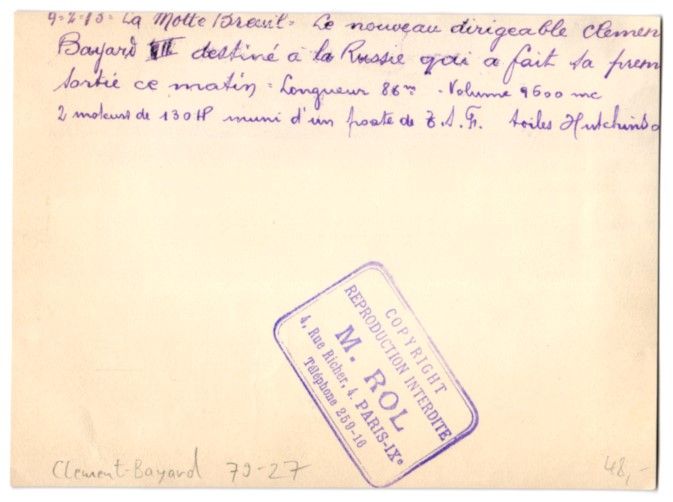 9-2-13 - La Motte Breuil - Le nouveau dirigeable Clemen
Bayard III destiné à la Russie qui a fait sa prem
sortie ce matin - Longueur 86m - Volume 9600 mc
2 moteurs de 130 HP muni d'un poste de T.S.F. toiles Hutchinso
COPYRIGHT
REPRODUCTION INTERDITE
M. ROL
4, Rue Richer, 4. PARIS-IXe
Téléphone 259-16
Clement-Bayard 79-27
48,-